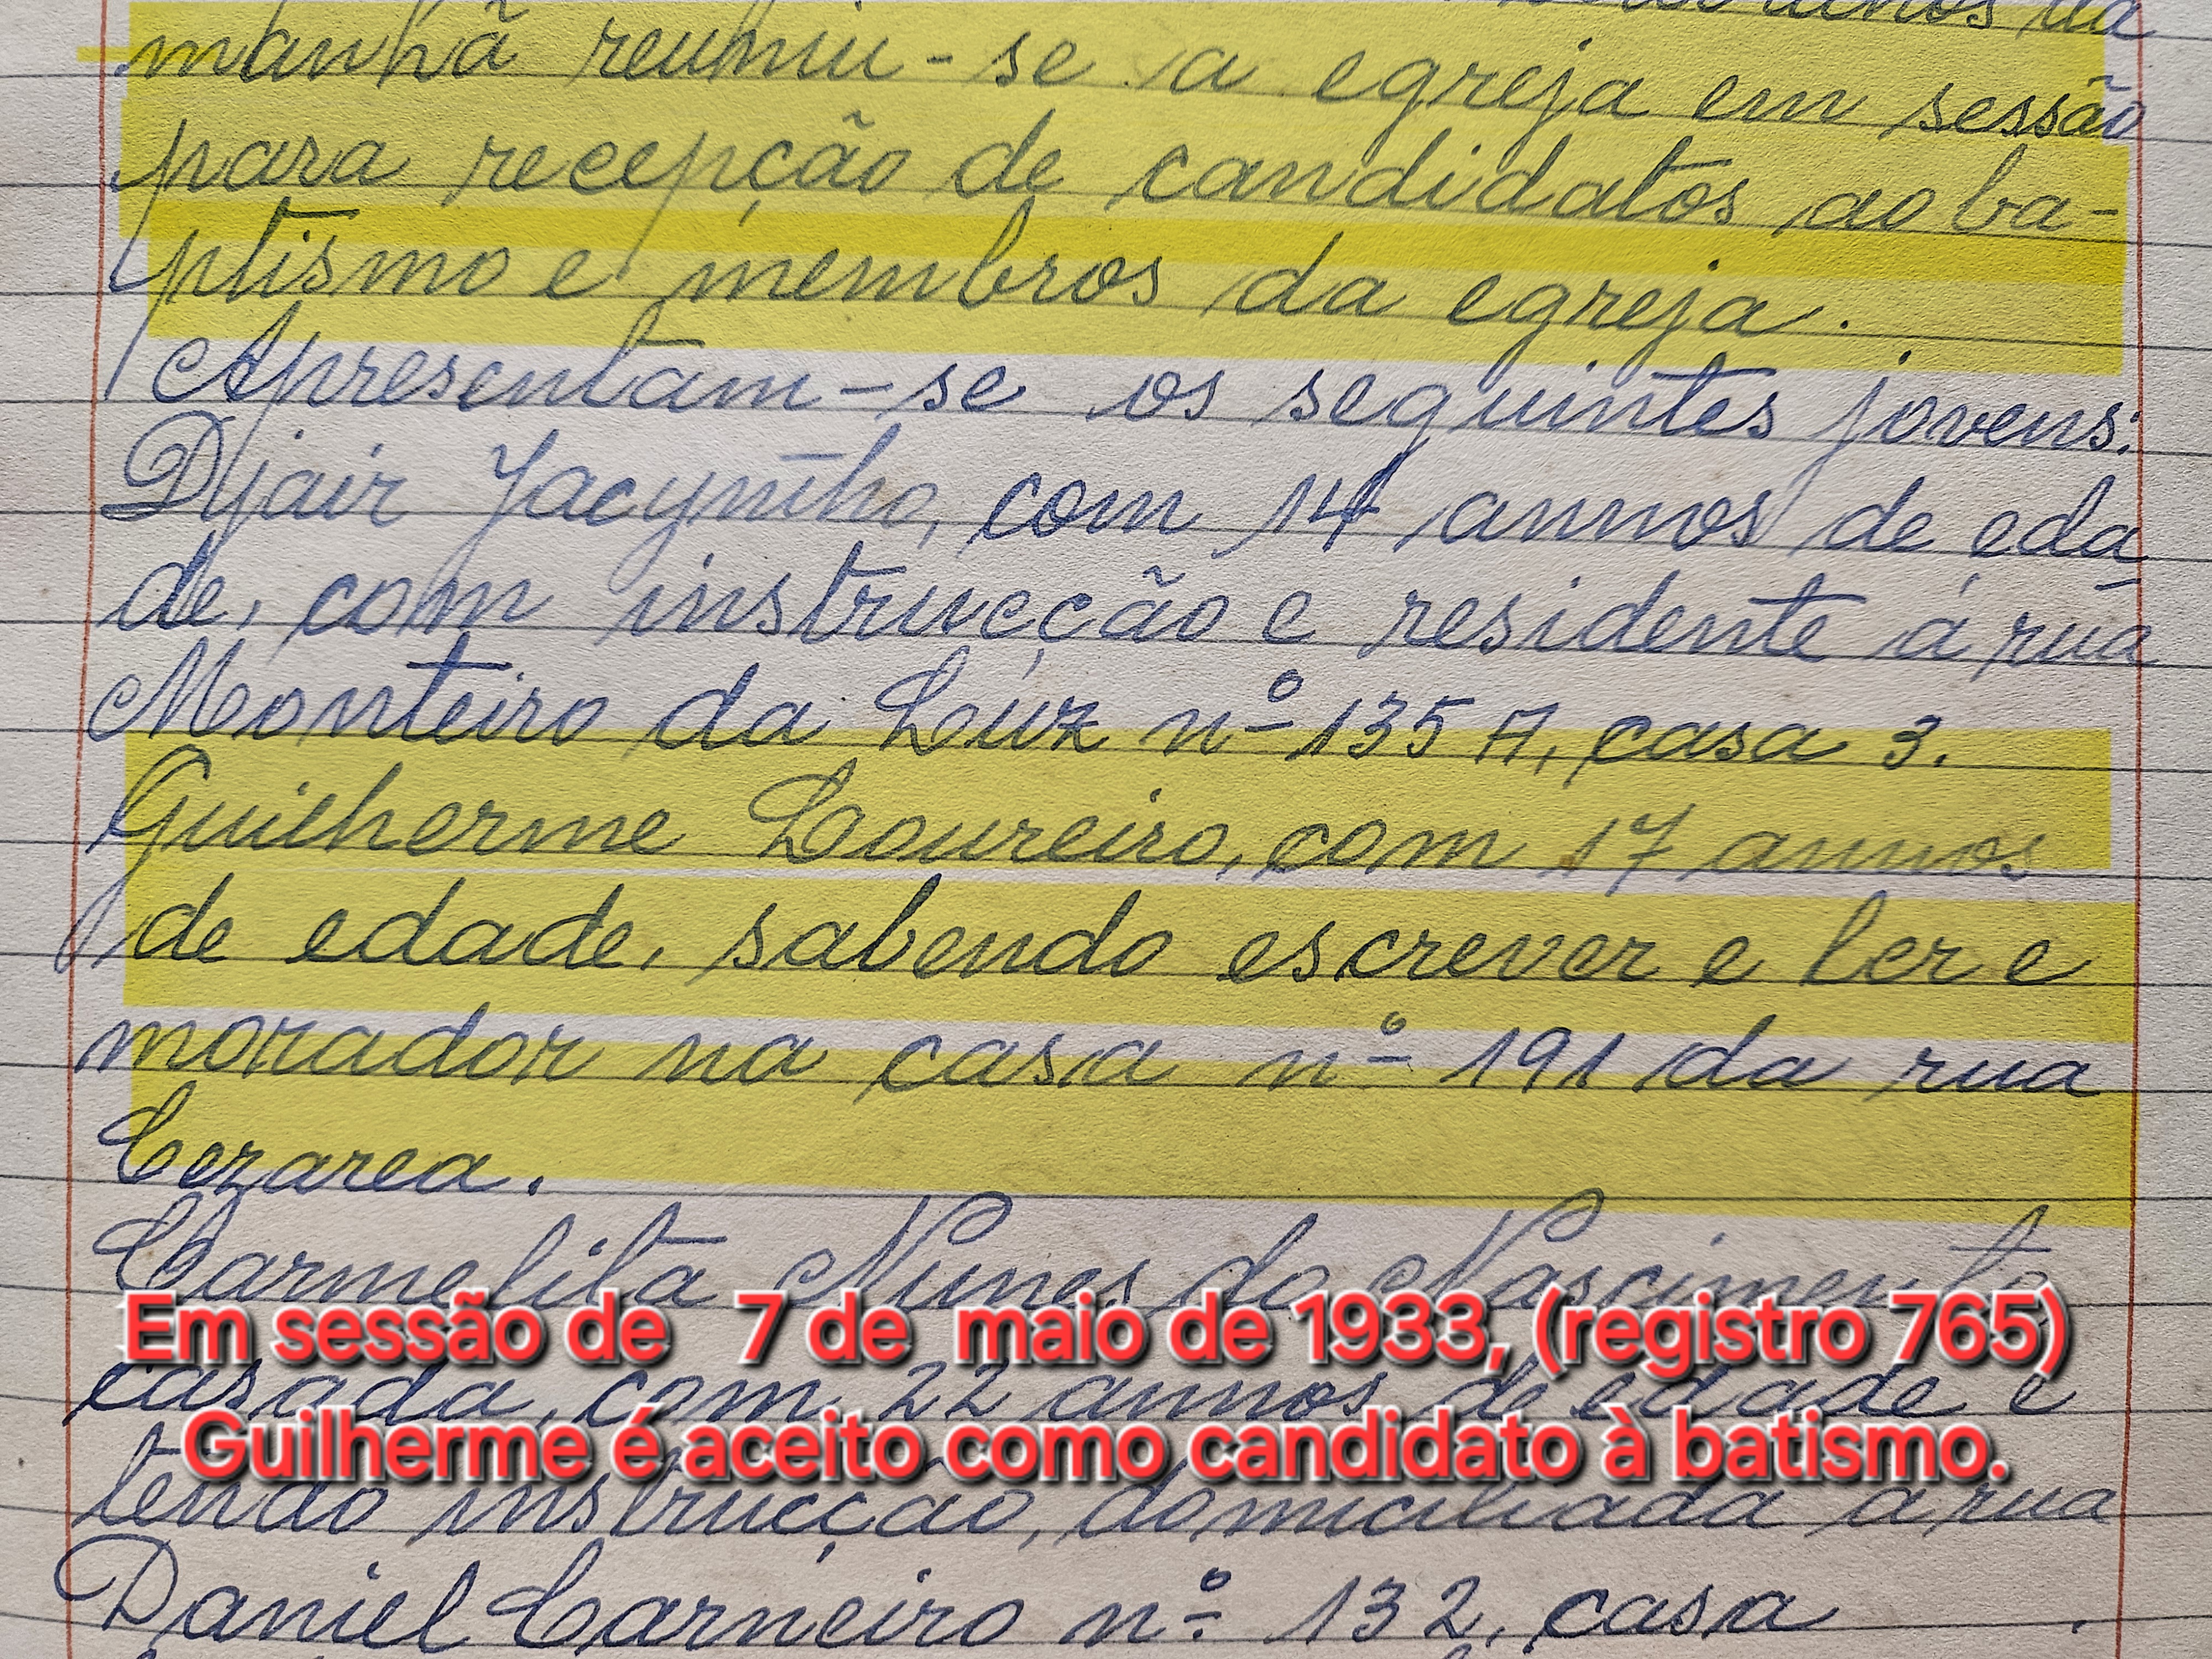 manhã reuniu-se a egreja em sessão
para recepção de candidatos ao ba-
ptismo e membros da egreja.
Apresentam-se os seguintes jovens:
Djair Jacyntho, com 14 annos de eda
de, com instrucção e residente á rua
Monteiro da Luz nº 135 A, casa 3.
Guilherme Loureiro, com 17 annos
de edade, sabendo escrever e ler e
morador na casa nº 191 da rua
Cezarea.
Carmelita Nunes do Nascimento
Em sessão de 7 de maio de 1933, (registro 765)
casada, com 22 annos de edade e
Guilherme é aceito como candidato à batismo.
tendo instrucção, domiciliada a rua
Daniel Carneiro nº 132, casa